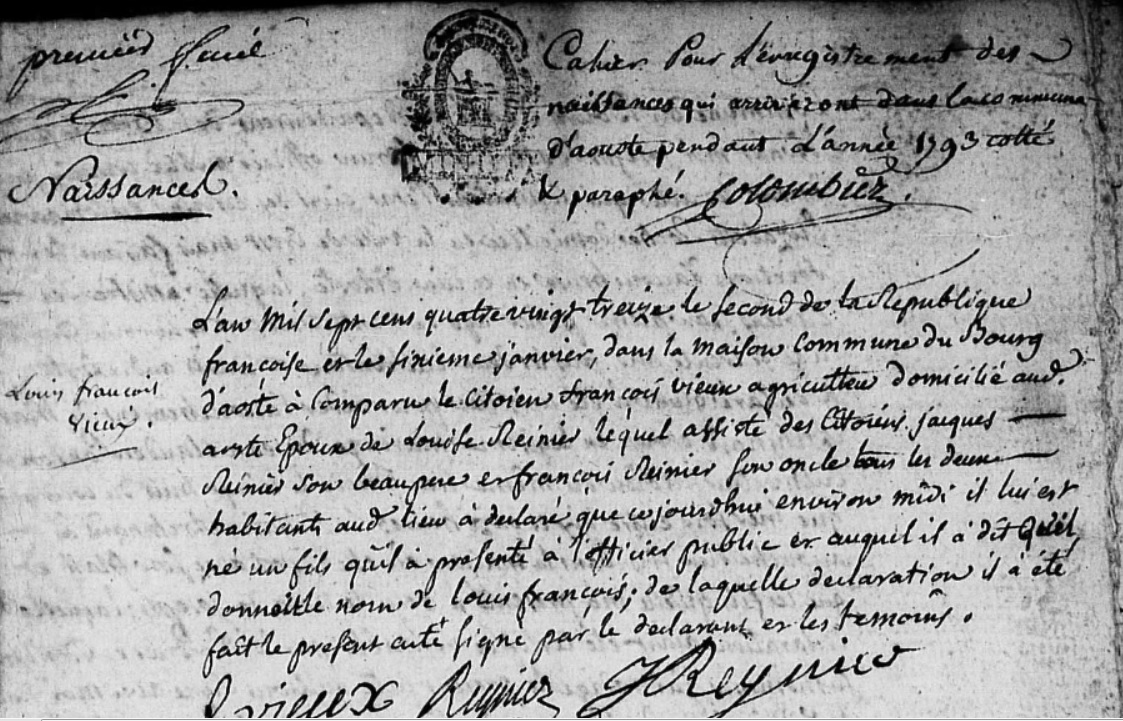 premier
Naissances.
Cahier Pour L'enregistrement des
naissances qui arriveront dans la commune
d'aouste pendant L'année 1793 cotté
& paraphé. Colombier.
Louis françois
vieux.
L'an Mil sept cens quatre vingt treize le second de la Republique
françoise et le sixieme janvier, dans la maison Commune du Bourg
d'aoste à Comparu le Citoien françois vieux agriculteur domicilié aud.
aoste Epoux de Louise Reinier lequel assisté des Citoiens jacques
Reinier son beaupere et françois Reinier son oncle tous les deux
habitants aud. lieu à declaré que cejourdhui environ midi il lui est
né un fils qu'il à presenté à l'officier public et auquel il à dit Qu'il
donnoit le nom de louis françois; de laquelle declaration il à été
fait le present acte signé par le declarant et les temoins.
vieux Reynier JReynier